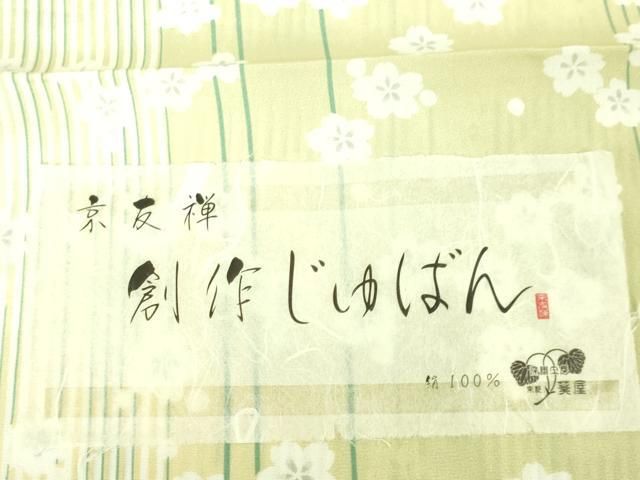 京友禅
創作じゅばん
絹 100%
葵屋